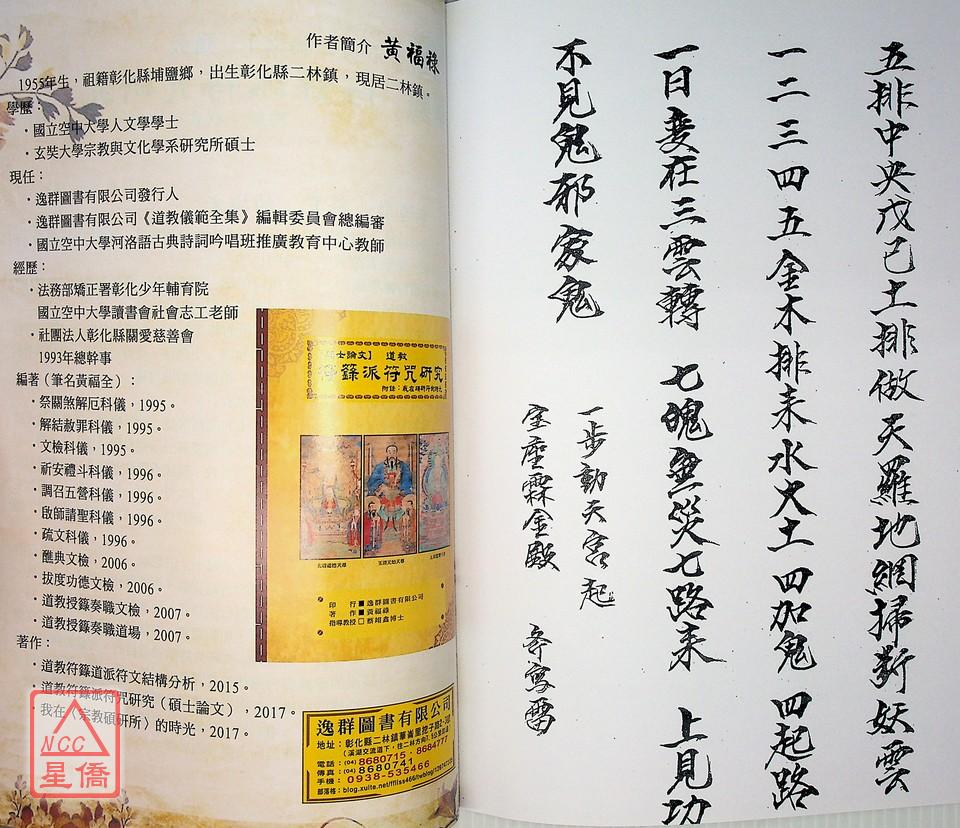 作者簡介 黃福祿
1955年生，祖籍彰化縣埔鹽鄉，出生彰化縣二林鎮，現居二林鎮。
學歷：
・國立空中大學人文學學士
・玄奘大學宗教與文化學系研究所碩士
現任：
・逸群圖書有限公司發行人
・逸群圖書有限公司《道教儀範全集》編輯委員會總編審
・國立空中大學河洛語古典詩詞吟唱班推廣教育中心教師
經歷：
・法務部矯正署彰化少年輔育院
國立空中大學讀書會社會志工老師
・社團法人彰化縣關愛慈善會
1993年總幹事
編著（筆名黃福全）：
・祭關煞解厄科儀，1995。
・解結赦罪科儀，1995。
・文檢科儀，1995。
・祈安禮斗科儀，1996。
・調召五營科儀，1996。
・啟師請聖科儀，1996。
・疏文科儀，1996。
・醮典文檢，2006。
・拔度功德文檢，2006。
・道教授籙奏職文檢，2007。
・道教授籙奏職道場，2007。
著作：
・道教符籙道派符文結構分析，2015。
・道教符籙派符咒研究（碩士論文），2017。
・我在〈宗教碩研所〉的時光，2017。
士論文】 道教
籙派符咒研究
印 行■逸群圖書有限公司
著 作■黃福祿
指導教授□蔡翊鑫博士
逸群圖書有限公司
地址：彰化縣二林鎮華崙里挖子路
電話：(04)8680715・8684777
傳真：(04)8680741
手機：0938-535466
部落格：blog.xuite.net/ffliss466/twblog
NCC
星僑
五排中央戊己土排做天羅地網掃斬妖雲
一二三四五金木排來水火土四加鬼四起路
一日變在三雲轉 七魄無災七路來 上見功
不見鬼邪家鬼
一步動天宮起